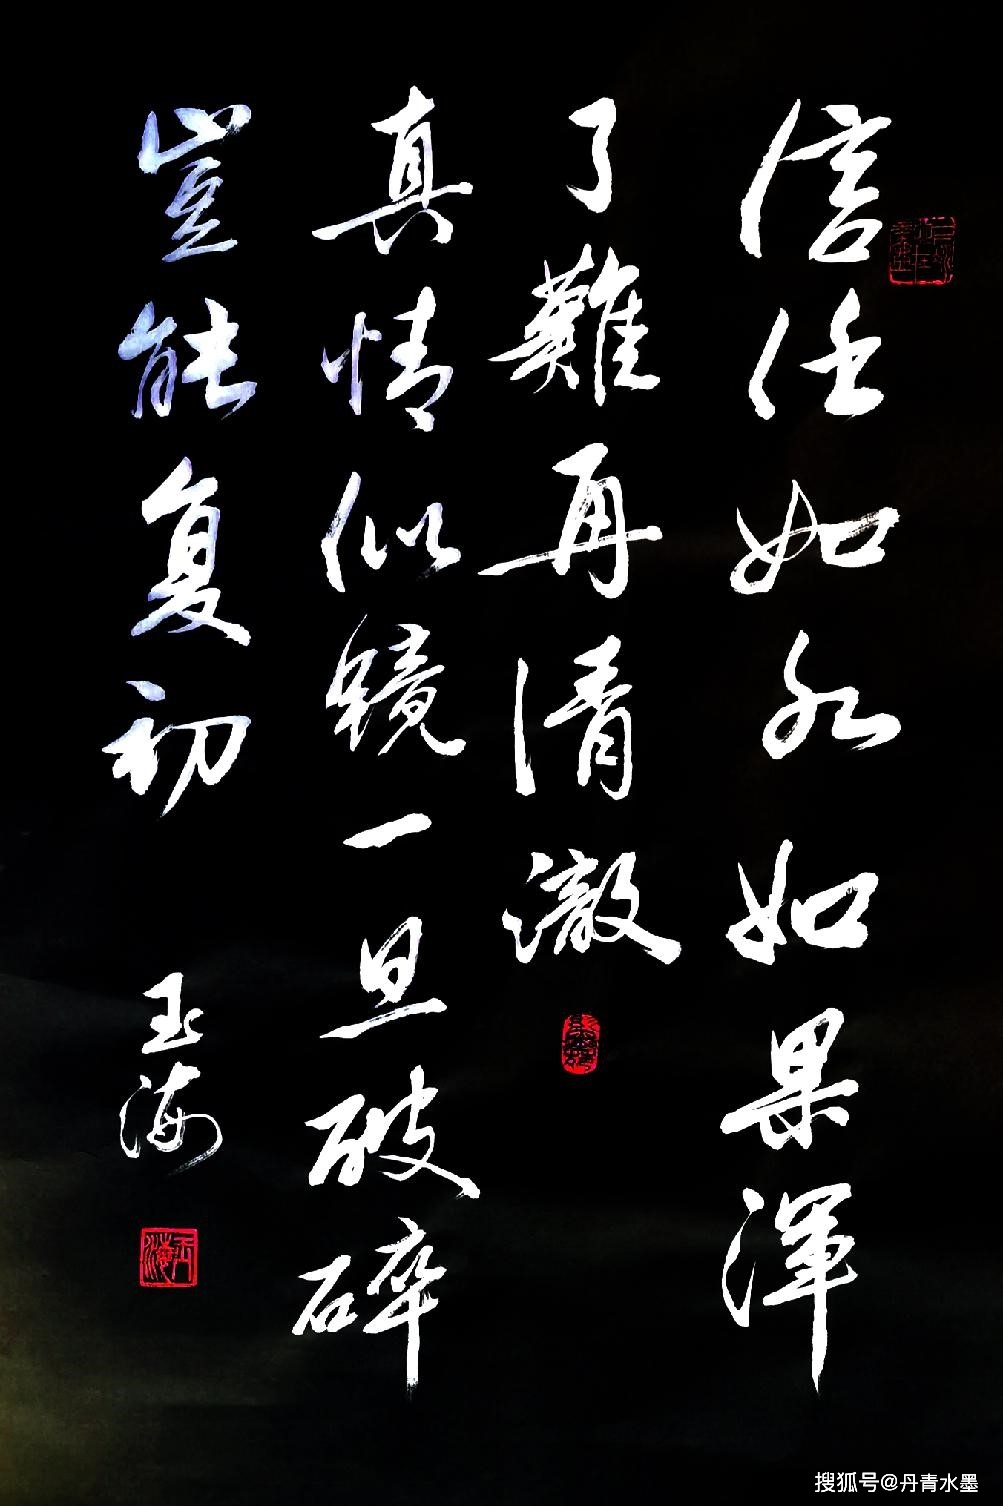 信任如水如果渾
了難再清澈
真情似镜一旦破碎
豈能复初
玉海
玉海
搜狐号@丹青水墨